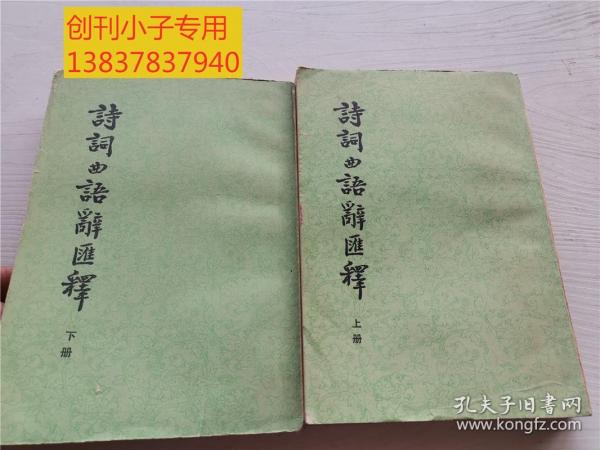 创刊小子专用
13837837940
詩詞曲語辭匯釋
下册
詩詞曲語辭匯釋
上册
孔夫子旧书网
www.kongfz.com